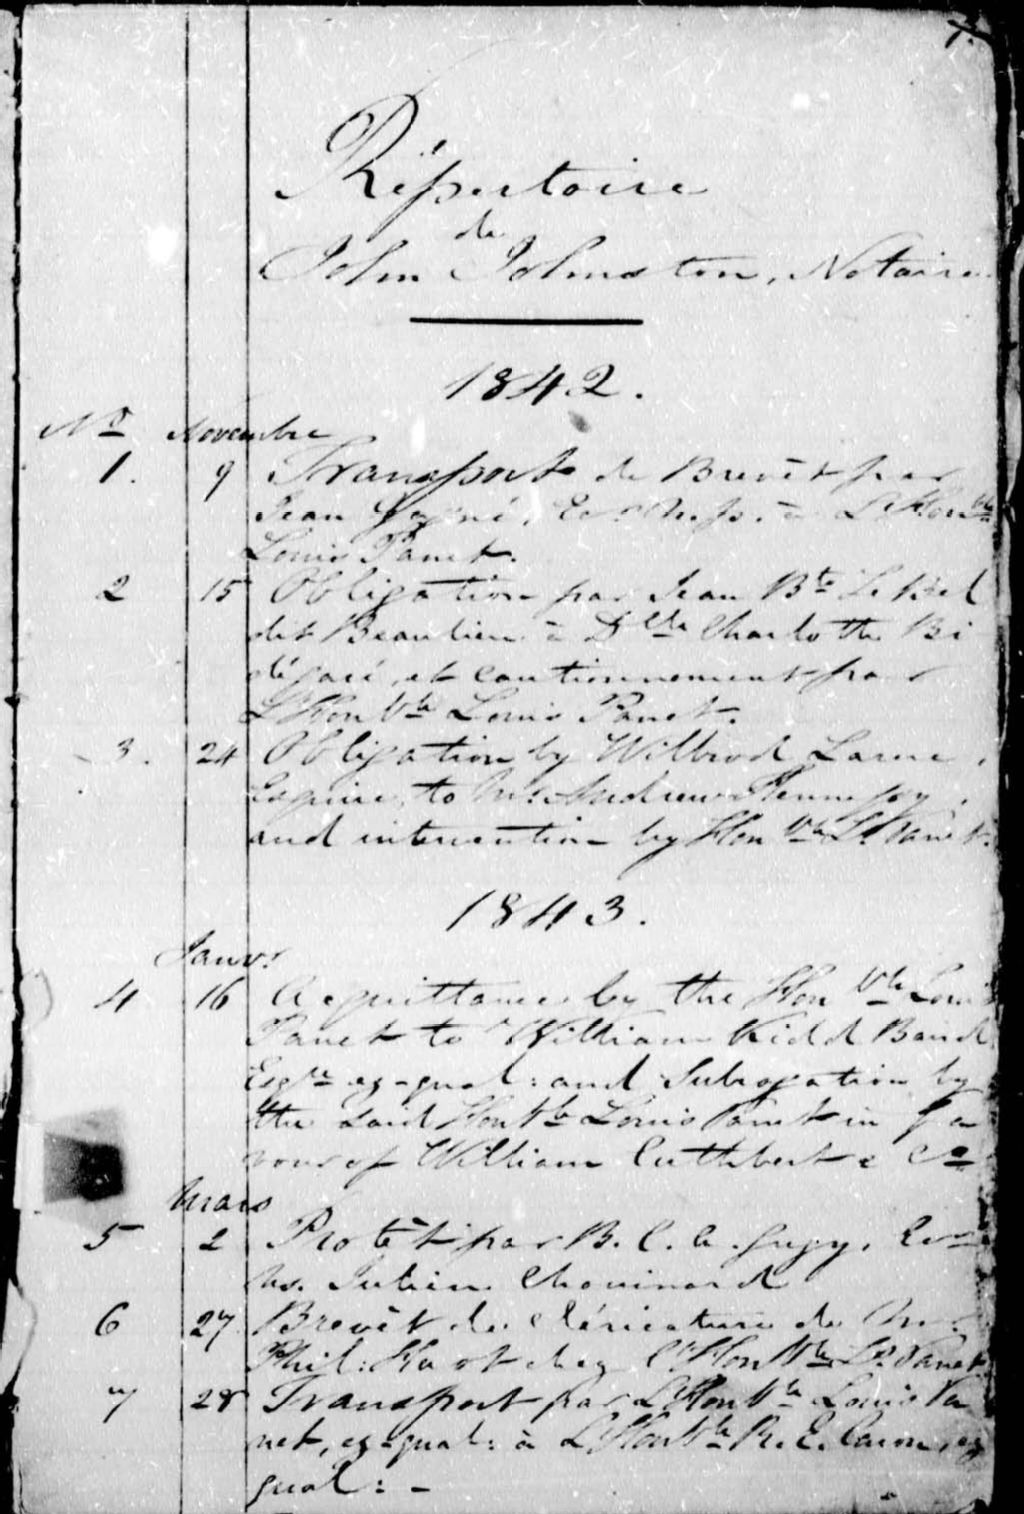 7.
Répertoire
de
John Johnston, Notaire
1842.
No Novembre
1. 9 Transport de Brevêt par
Jean Gagné, Ecr. à L'Honble
Louis Panet.
2 15 Obligation par Jean Bte LeBel
dit Beaulieu à Dlle Charlotte Bé
dégaré, et cautionnement par
L'Honble Louis Panet.
3. 24 Obligation by Wilbrod Larue,
Esquire, to Mr. Andrew Hennessy,
and intervention by Honble Ls. Panet.
1843.
Janvr
4 16 Acquittance by the Honble Louis
Panet to William Kidd Baird
Esqre ez-qual: and Subrogation by
the said Honble Louis Panet in fa
vour of William Cuthbert & Co
Mars
5 2 Protêt par B. C. A. Gugy, Ecr
vs. Julien Chouinard
6 27 Brevêt de Cléricature de Mr.
Phil: Huot chez l'Honble Ls. Panet
7 28 Transport par L'Honble Louis Pa
net, ez-qual: à L'Honble R. E. Caron, ez
qual: -